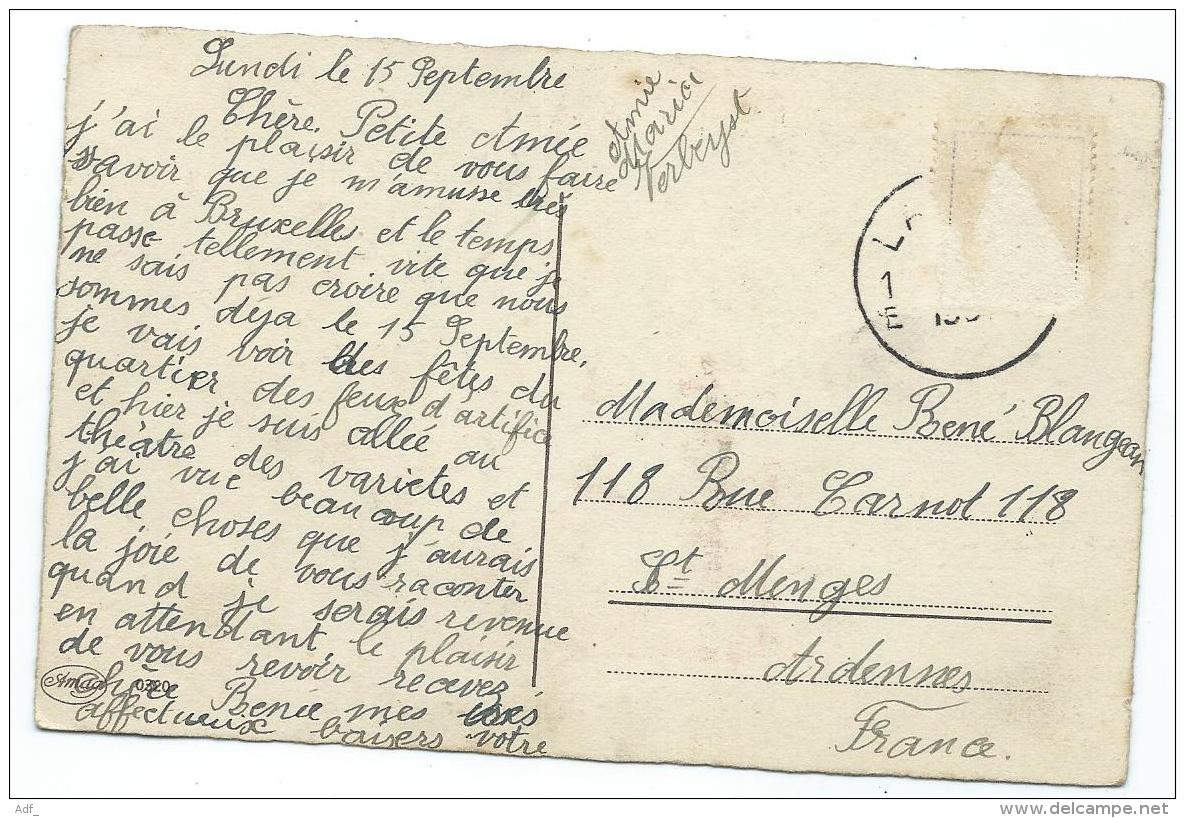 Lundi le 15 Septembre
Chère Petite Amée
j'ai le plaisir de vous faire
savoir que je m'amusse très
bien à Bruxelles et le temps
passe tellement vite que je
ne sais pas croire que nous
sommes déja le 15 Septembre,
je vais voir les fêtes du
quartier des feux d'artifice
et hier je suis allée au
théatre des varietes et
j'ai vue beaucoup de
belle choses que j'aurais
la joie de vous raconter
quand je serais revenue
en attendant le plaisir
de vous revoir recevez,
chère Benée mes
affectueux baisers votre
Amie
Maria
Verbeyst
Mademoiselle Bené Blangean
118 Rue Carnot 118
St Menges
Ardennes
France.
Amag 0320
L
1
E
Adf_
delcampe.net